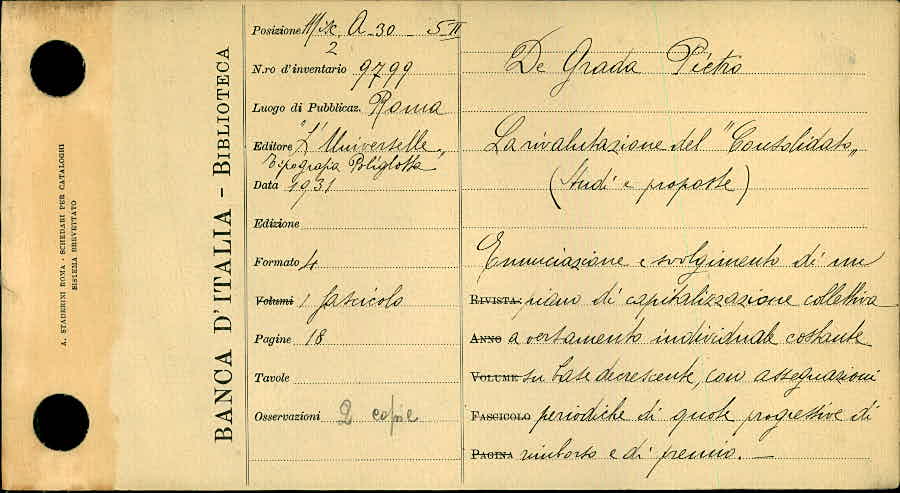 A. STADERINI ROMA - SCHEDARI PER CATALOGHI
SISTEMA BREVETTATO
BANCA D'ITALIA - BIBLIOTECA
Posizione Misc. A-30 - 5 II
2
N.ro d'inventario 9799
Luogo di Pubblicaz. Roma
Editore "L'Universelle"
Tipografia Poliglotta
Data 1931
Edizione
Formato 4
Volumi 1 fascicolo
Pagine 18
Tavole
Osservazioni 2 copie
De Grada Pietro
La rivalutazione del "Consolidato"
(Studi e proposte)
Enunciazione e svolgimento di un
RIVISTA: piano di capitalizzazione collettiva
ANNO a versamento individuale costante
VOLUME su base decrescente, con assegnazioni
FASCICOLO periodiche di quote progressive di
PAGINA rimborso e di premio. —